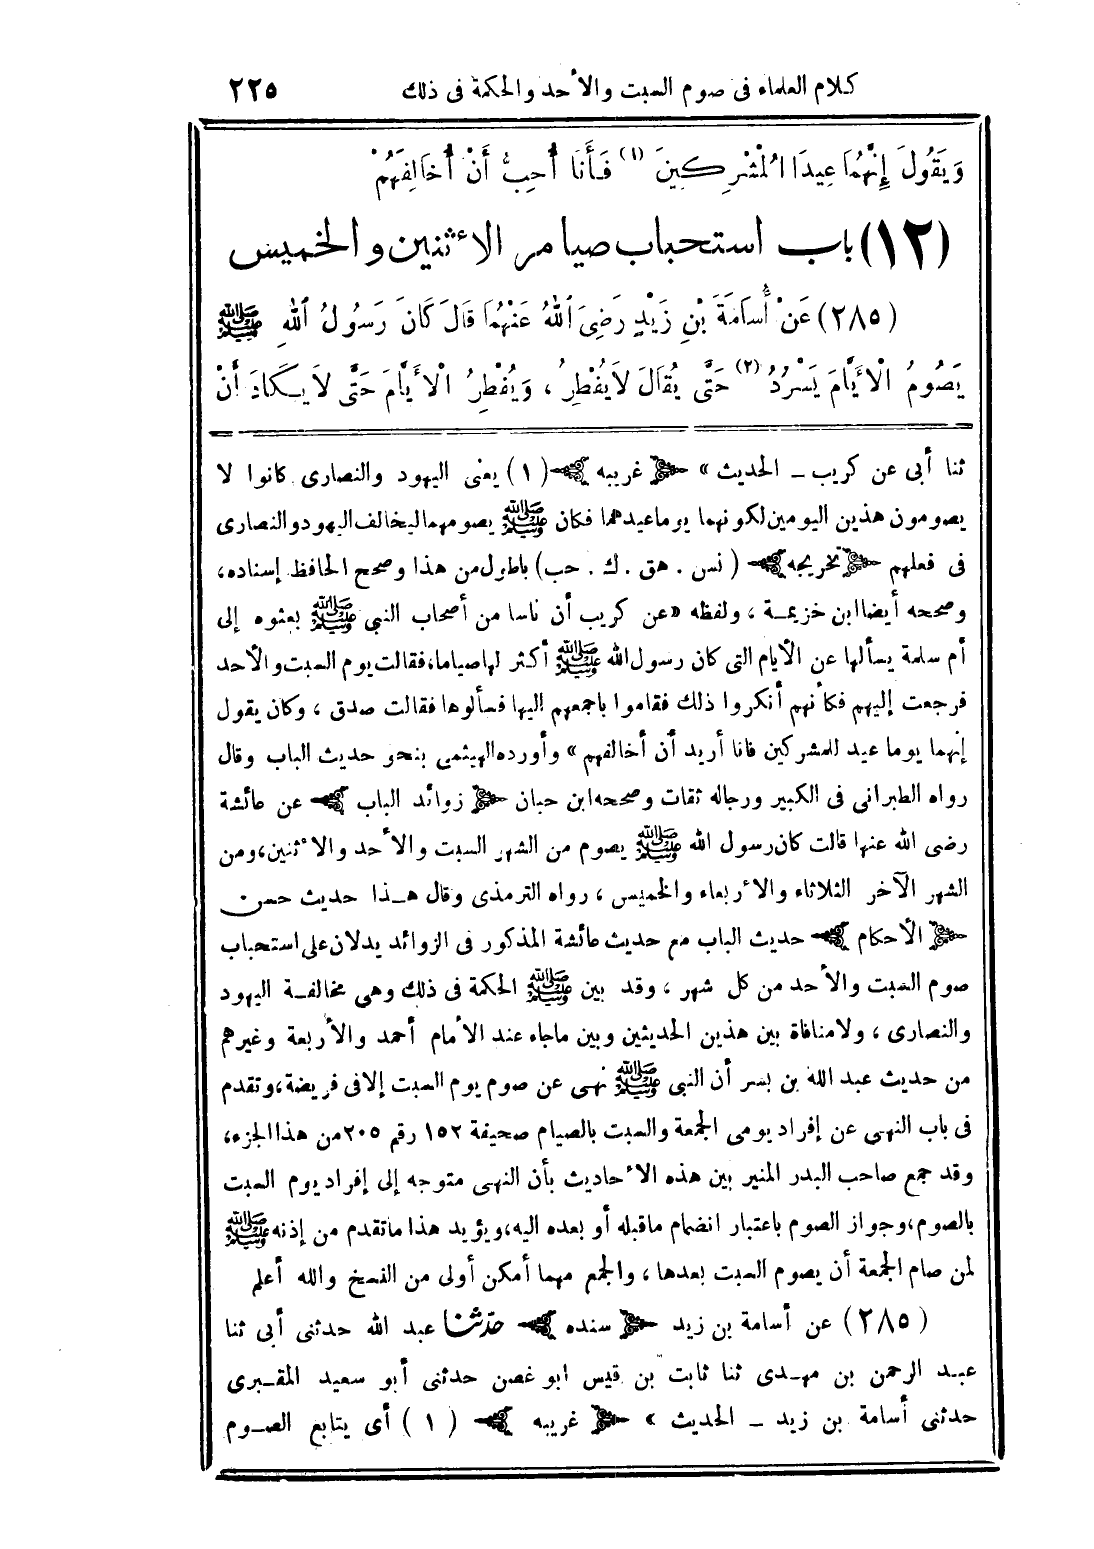 كلام العلماء فى صوم السبت والأحد والحكمة فى ذلك ٢٢٥
وَيَقُولَ إِنَّهُمَا عِيدَا الْمُشْرِكِينَ (١) فَأَنَا أُحِبُّ أَنْ أُخَالِفَهُمْ
(١٢) باب استحباب صيام الأثنين والخميس
(٢٨٥) عَنْ أُسَامَةَ بْنِ زَيْدٍ رَضِىَ اللهُ عَنْهُمَا قَالَ كَانَ رَسُولُ اللهِ ﷺ
يَصُومُ الْأَيَّامَ يَسْرُدُ (٢) حَتَّى يُقَالَ لَا يُفْطِرُ ، وَيُفْطِرُ الْأَيَّامَ حَتَّى لَا يَكَادَ أَنْ
ثنا أبى عن كريب ــ الحديث » ﴿ غريبه ﴾ (١) يعنى اليهود والنصارى كانوا لا
يصومون هذين اليومين لكونهما يوما عيدهما فكان ﷺ يصومهما ليخالف اليهود والنصارى
فى فعلهم ﴿ تخريجه ﴾ ( نس . هق . ك . حب) باطول من هذا وصحح الحافظ إسناده،
وصححه أيضا ابن خزيمة ، ولفظه «عن كريب أن ناسا من أصحاب النبى ﷺ بعثوه إلى
أم سلمة يسألها عن الأيام التى كان رسول الله ﷺ أكثر لها صياما، فقالت يوم السبت والأحد
فرجعت إليهم فكأنهم أنكروا ذلك فقاموا باجمعهم اليها فسألوها فقالت صدق ، وكان يقول
إنهما يوما عيد للمشركين فانا أريد أن أخالفهم » وأورده الهيثمى بنحو حديث الباب وقال
رواه الطبرانى فى الكبير ورجاله ثقات وصححه ابن حبان ﴿ زوائد الباب ﴾ عن عائشة
رضى الله عنها قالت كان رسول الله ﷺ يصوم من الشهر السبت والأحد والأثنين، ومن
الشهر الآخر الثلاثاء والأربعاء والخميس ، رواه الترمذى وقال هـذا حديث حسن
﴿ الأحكام ﴾ حديث الباب مع حديث عائشة المذكور فى الزوائد يدلان على استحباب
صوم السبت والأحد من كل شهر ، وقد بين ﷺ الحكمة فى ذلك وهى مخالفة اليهود
والنصارى ، ولا منافاة بين هذين الحديثين وبين ماجاء عند الأمام أحمد والأربعة وغيرهم
من حديث عبد الله بن بسر أن النبى ﷺ نهى عن صوم يوم السبت إلا فى فريضة، وتقدم
فى باب النهى عن إفراد يومى الجمعة والسبت بالصيام صحيفة ١٥٢ رقم ٢٠٥ من هذا الجزء،
وقد جمع صاحب البدر المنير بين هذه الأحاديث بأن النهى متوجه إلى إفراد يوم السبت
بالصوم، وجواز الصوم باعتبار انضمام ماقبله أو بعده اليه، ويؤيد هذا ماتقدم من إذنه ﷺ
لمن صام الجمعة أن يصوم السبت بعدها ، والجمع مهما أمكن أولى من النسخ والله أعلم
(٢٨٥) عن أسامة بن زيد ﴿ سنده ﴾ حدّثنا عبد الله حدثنى أبى ثنا
عبـد الرحمن بن مهـدى ثنا ثابت بن قيس ابو غصن حدثنى أبو سعيد المقـبرى
حدثنى أسامة بن زيد ــ الحديث » ﴿ غريبه ﴾ (١) أى يتابع الصـوم